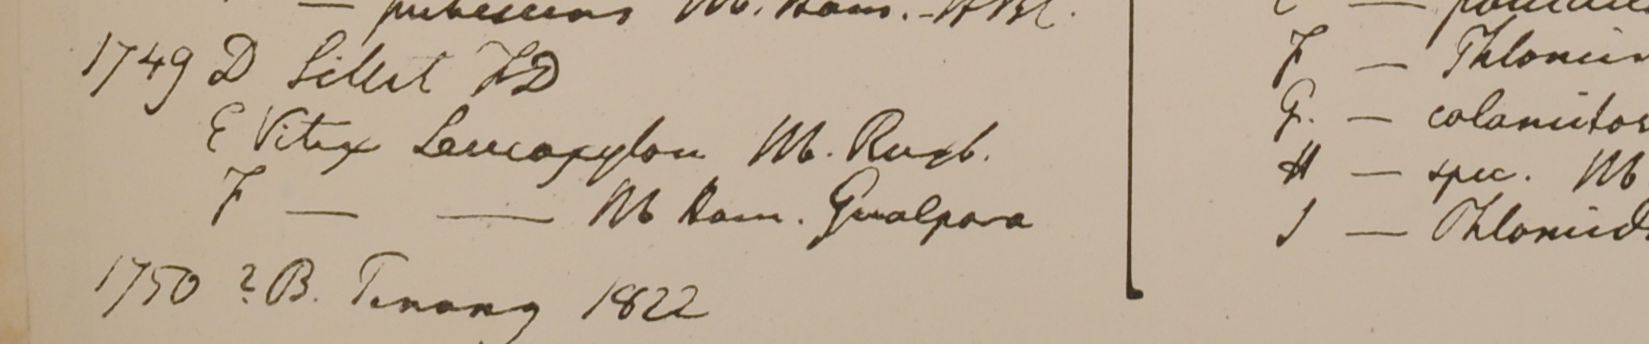 — pubescens Hb. Ham. - HBC.
1749 D Sillet FD
E Vitex Leucoxylon Hb. Roxb.
F — — Hb Ham. Gualpara
1750 ? B. Penang 1822
F — Phlomis
G. — calamintos
H — spec. Hb
J — Phlomid